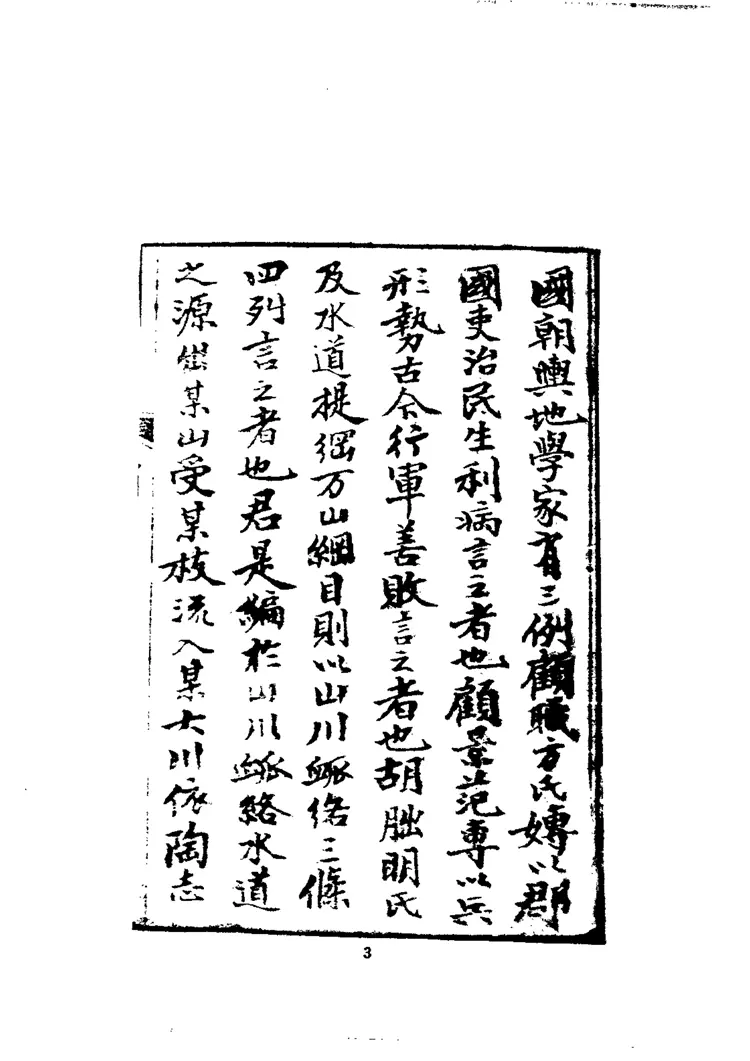 國朝輿地學家有三例顧職方氏專以郡
國吏治民生利病言之者也顧景范專以兵
形勢古今行軍善敗言之者也胡朏明氏
及水道提綱万山綱目則以山川脈络三條
四列言之者也君是編於山川脈絡水道
之源出某山受某枝流入某大川依陶志
3